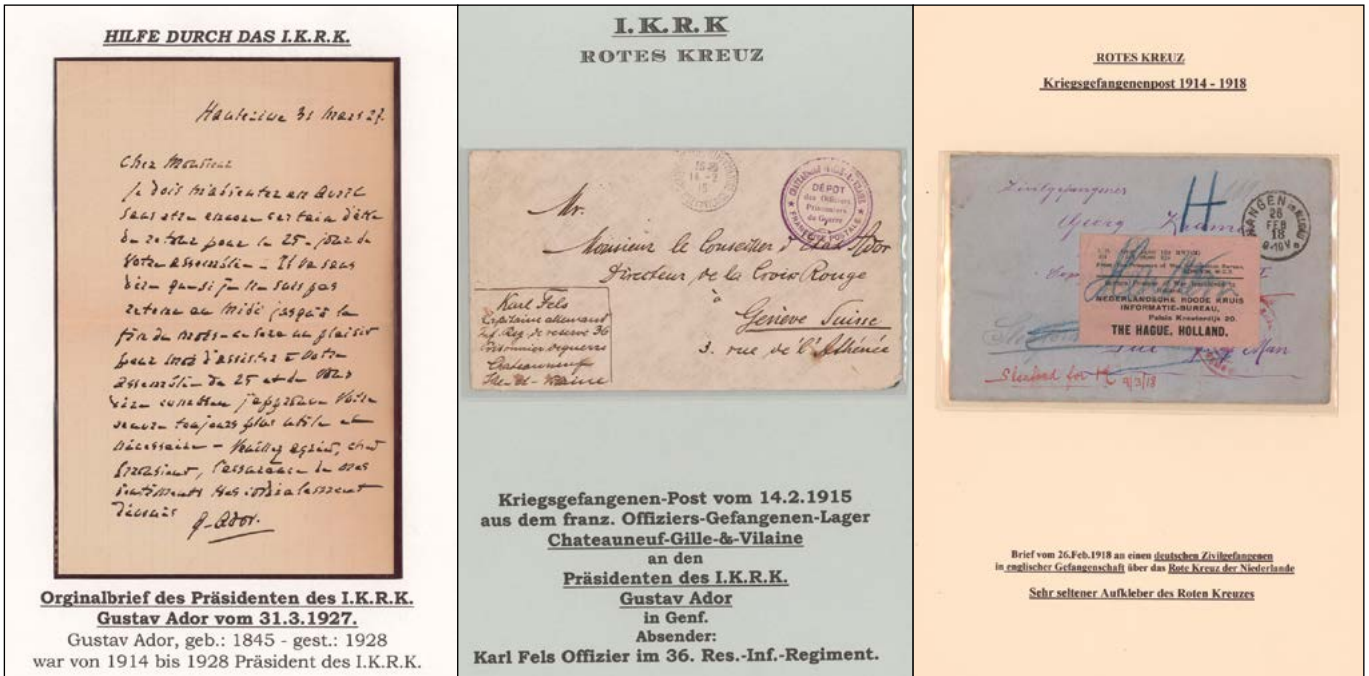 HILFE DURCH DAS I.K.R.K.
Hauterive 31 Mars 27.
Cher Monsieur
Je dois m'absenter en Avril
sans etre encore certain d'être
de retour pour le 25 - jour de
Votre assemblée - Il va sans
dire que si je ne suis pas
retenu au Midi jusqu'à la
fin du mois ce sera un plaisir
pour moi d'assister à Votre
assemblée du 25 et de Vous
dire combien j'apprécie Votre
oeuvre toujours plus utile et
nécessaire - Veuillez agréer, cher
Monsieur, l'assurance de mes
sentiments très cordialement
dévoués
G. Ador.
Orginalbrief des Präsidenten des I.K.R.K.
Gustav Ador vom 31.3.1927.
Gustav Ador, geb.: 1845 - gest.: 1928
war von 1914 bis 1928 Präsident des I.K.R.K.
I.K.R.K
ROTES KREUZ
DÉPOT
des Officiers
Prisonniers
de Guerre
FRANCHISE POSTALE
Mr.
Monsieur le Conseiller d' Ador
Directeur de la Croix Rouge
à
Genève Suisse
3. rue de l'Athénée
Karl Fels
Capitaine allemand
Inf. Reg. de reserve 36
Prisonnier de guerre
Chateauneuf
Ille-et-Vilaine
Kriegsgefangenen-Post vom 14.2.1915
aus dem franz. Offiziers-Gefangenen-Lager
Chateauneuf-Gille-&-Vilaine
an den
Präsidenten des I.K.R.K.
Gustav Ador
in Genf.
Absender:
Karl Fels Offizier im 36. Res.-Inf.-Regiment.
ROTES KREUZ
Kriegsgefangenenpost 1914 - 1918
Zivilgefangener
Georg
H
26
FEB
18
NEDERLANDSCHE ROODE KRUIS
INFORMATIE-BUREAU,
Paleis Kneuterdijk 20.
THE HAGUE. HOLLAND.
Man
9/3/18
Brief vom 26.Feb.1918 an einen deutschen Zivilgefangenen
in englischer Gefangenschaft über das Rote Kreuz der Niederlande
Sehr seltener Aufkleber des Roten Kreuzes